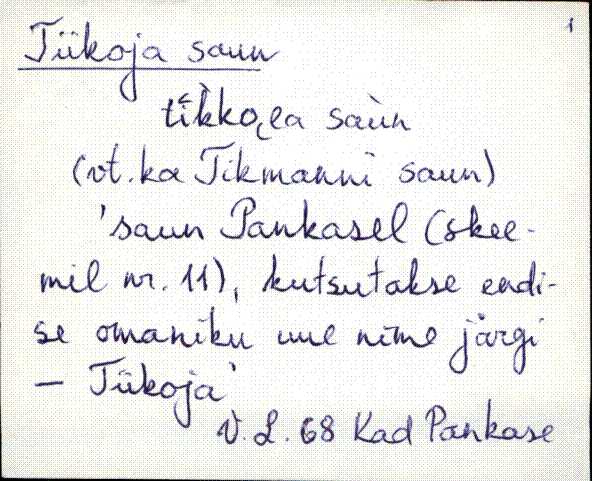 1
Tiikoja saun
tikkoea saùn
(vt. ka Tikmanni saun)
'saun Pankasel (skee-
mil nr. 11), kutsutakse endi-
se omaniku uue nime järgi
— Tiikoja'
V. L. 68 Kad Pankase